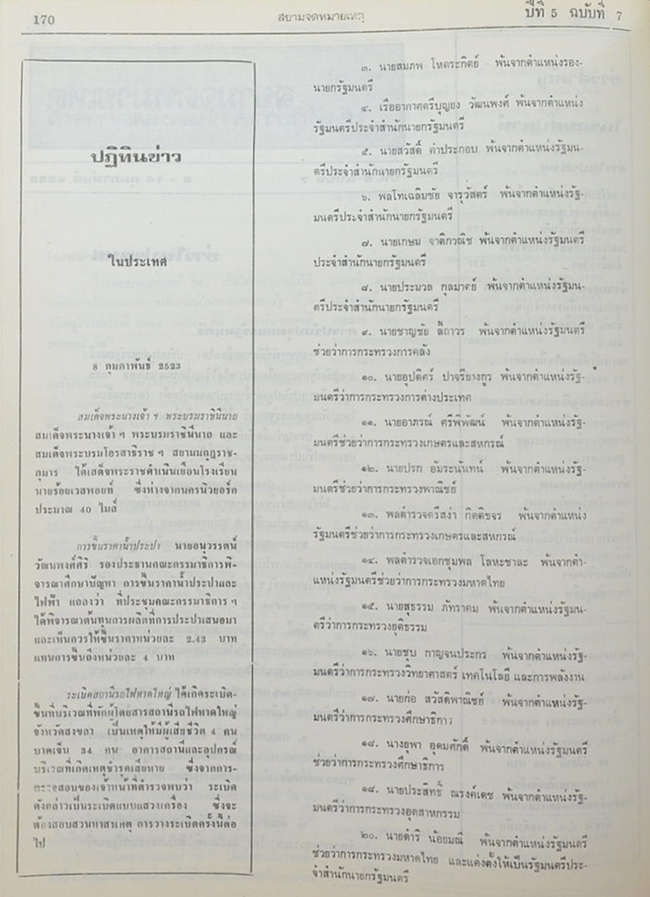 170
สยามจดหมายเหตุ
ปีที่ 5 ฉบับที่ 7
ปฏิทินข่าว
ในประเทศ
8 กุมภาพันธ์ 2523
สมเด็จพระนางเจ้า ฯ พระบรมราชินีนาถ
สมเด็จพระนางเจ้า ฯ พระบรมราชินีนาถ และ
สมเด็จพระบรมโอรสาธิราช ฯ สยามมกุฎราช-
กุมาร ได้เสด็จพระราชดำเนินเยือนโรงเรียน
นายร้อยเวสพอยท์ ซึ่งห่างจากนครนิวยอร์ค
ประมาณ 40 ไมล์
การขึ้นราคาน้ำประปา นายอนุวรรตน์
วัฒนพงศ์ศิริ รองประธานคณะกรรมาธิการพิ-
จารณาศึกษาปัญหา การขึ้นราคาน้ำประปาและ
ไฟฟ้า แถลงว่า ที่ประชุมคณะกรรมาธิการ ฯ
ได้พิจารณาต้นทุนการผลิตที่การประปาเสนอมา
และเห็นควรให้ขึ้นราคาหน่วยละ 2.43 บาท
แทนการขึ้นถึงหน่วยละ 4 บาท
ระเบิดสถานีรถไฟหาดใหญ่ ได้เกิดระเบิด-
ขึ้นที่บริเวณที่พักผู้โดยสารสถานีรถไฟหาดใหญ่
จังหวัดสงขลา เป็นเหตุให้มีผู้เสียชีวิต 4 คน
บาดเจ็บ 34 คน อาคารสถานีและอุปกรณ์
บริเวณที่เกิดเหตุชำรุดเสียหาย ซึ่งจากการ-
ตรวจสอบของเจ้าหน้าที่ตำรวจพบว่า ระเบิด
ดังกล่าวเป็นระเบิดแบบแสวงเครื่อง ซึ่งจะ
ต้องสอบสวนหาสาเหตุ การวางระเบิดครั้งนี้ต่อ
ไป
๓. นายสมภพ โหตระกิตย์ พ้นจากตำแหน่งรอง-
นายกรัฐมนตรี
๔. เรืออากาศตรีบุญยง วัฒนพงศ์ พ้นจากตำแหน่ง
รัฐมนตรีประจำสำนักนายกรัฐมนตรี
๕. นายสวัสดิ์ คำประกอบ พ้นจากตำแหน่งรัฐมน-
ตรีประจำสำนักนายกรัฐมนตรี
๖. พลโทเฉลิมชัย จารุวัสตร์ พ้นจากตำแหน่งรัฐ-
มนตรีประจำสำนักนายกรัฐมนตรี
๗. นายเกษม จาติกวณิช พ้นจากตำแหน่งรัฐมนตรี
ประจำสำนักนายกรัฐมนตรี
๘. นายประมวล กุลมาตย์ พ้นจากตำแหน่งรัฐมน-
ตรีประจำสำนักนายกรัฐมนตรี
๙. นายชาญชัย ลี้ถาวร พ้นจากตำแหน่งรัฐมนตรี
ช่วยว่าการกระทรวงการคลัง
๑๐. นายอุปดิศร์ ปาจรียางกูร พ้นจากตำแหน่งรัฐ-
มนตรีว่าการกระทรวงการต่างประเทศ
๑๑. นายอาภรณ์ ศรีพิพัฒน์ พ้นจากตำแหน่งรัฐ-
มนตรีช่วยว่าการกระทรวงเกษตรและสหกรณ์
๑๒. นายปรก อัมระนันทน์ พ้นจากตำแหน่งรัฐ-
มนตรีช่วยว่าการกระทรวงพาณิชย์
๑๓. พลตำรวจตรีสง่า กิตติขจร พ้นจากตำแหน่ง
รัฐมนตรีช่วยว่าการกระทรวงเกษตรและสหกรณ์
๑๔. พลตำรวจเอกชุมพล โลหะชาละ พ้นจากตำ-
แหน่งรัฐมนตรีช่วยว่าการกระทรวงมหาดไทย
๑๕. นายสุธรรม ภัทราคม พ้นจากตำแหน่งรัฐมน-
ตรีว่าการกระทรวงยุติธรรม
๑๖. นายชุบ กาญจนประกร พ้นจากตำแหน่งรัฐ-
มนตรีว่าการกระทรวงวิทยาศาสตร์ เทคโนโลยี และการพลังงาน
๑๗. นายก่อ สวัสดิพาณิชย์ พ้นจากตำแหน่งรัฐ-
มนตรีว่าการกระทรวงศึกษาธิการ
๑๘. นางยุพา อุดมศักดิ์ พ้นจากตำแหน่งรัฐมนตรี
ช่วยว่าการกระทรวงศึกษาธิการ
๑๙. นายประสิทธิ์ ณรงค์เดช พ้นจากตำแหน่งรัฐ-
มนตรีว่าการกระทรวงอุตสาหกรรม
๒๐. นายดำริ น้อยมณี พ้นจากตำแหน่งรัฐมนตรี
ช่วยว่าการกระทรวงมหาดไทย และแต่งตั้งให้เป็นรัฐมนตรีประ-
จำสำนักนายกรัฐมนตรี